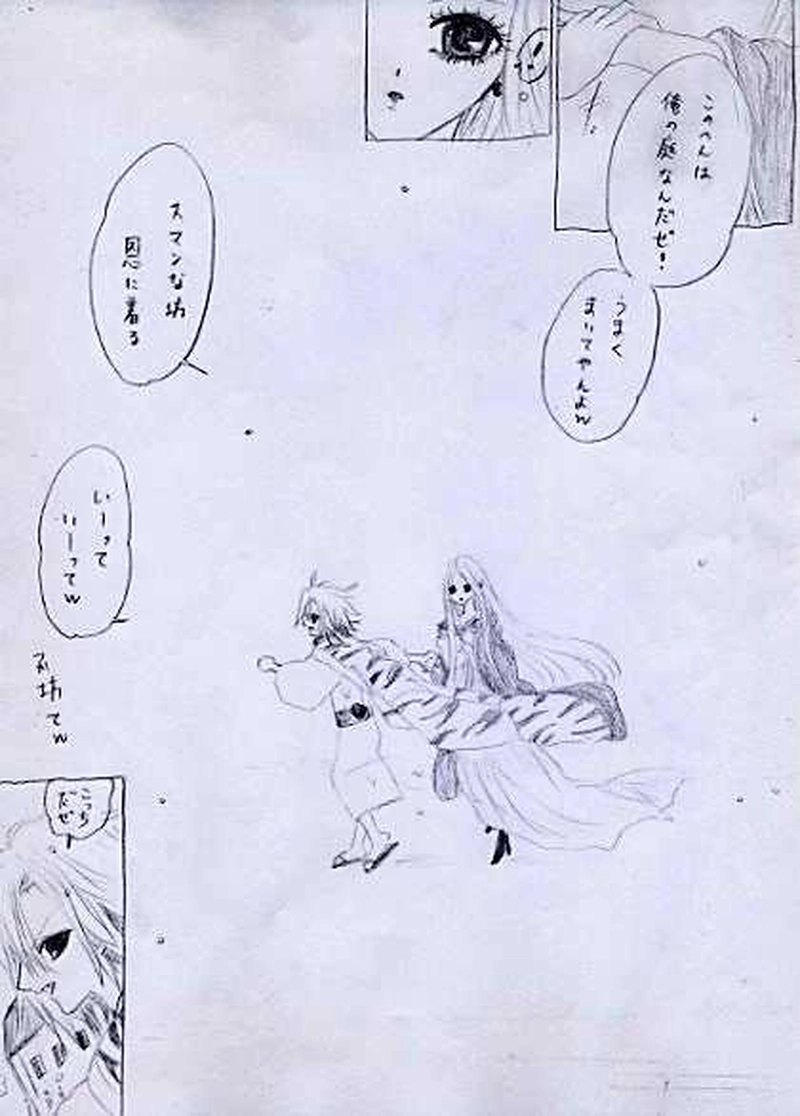 このへんは
俺の庭なんだぜ！
うまく
まいてやんよw
スマンな坊
恩に着る
いーって
いーってw
坊てw
こっち
だぜ